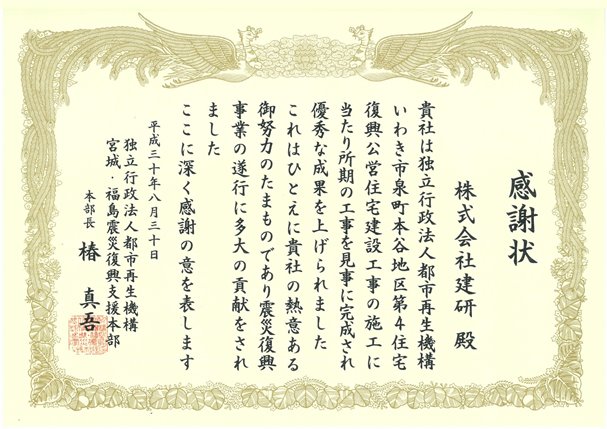 感謝状
株式会社建研 殿
貴社は独立行政法人都市再生機構
いわき市泉町本谷地区第4住宅
復興公営住宅建設工事の施工に
当たり所期の工事を見事に完成され
優秀な成果を上げられました
これはひとえに貴社の熱意ある
御努力のたまものであり震災復興
事業の遂行に多大の貢献をされ
ました
ここに深く感謝の意を表します
平成三十年八月三十日
独立行政法人都市再生機構
宮城・福島震災復興支援本部
本部長 椿 真吾